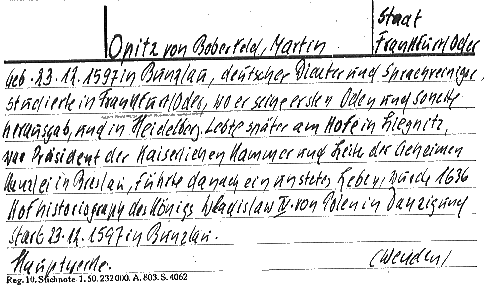 Staat
Opitz von Boberfeld, Martin Frankfurt/Oder
Geb. 23.12.1597 in Bunzlau, deutscher Dichter und Sprachreiniger,
studierte in Frankfurt/Oder, wo er seine ersten Oden und Sonette
herausgab, und in Heidelberg. Lebte später am Hofe in Liegnitz,
war Präsident der Kaiserlichen Kammer und Leite der Geheimen
Kanzlei in Breslau, führte danach ein unstetes Leben, wurde 1636
Hofhistoriograph des Königs Wladislaw IV. von Polen in Danzig und
starb 23.12.1597 in Bunzlau.
Hauptwerke. (Wenden)
Reg. 10. Stichnote 1. 50. 232 000. A. 803. S. 4062